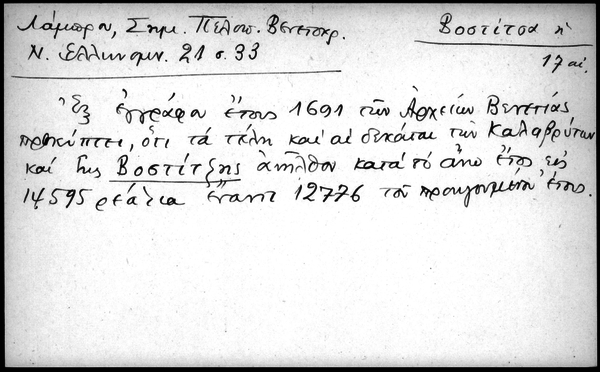 Λάμπρου, Σημ. Πελοπ. Βενετοκρ.
Ν. Ελληνομν. 21 σ. 33
Βοστίτσα ἡ
17 αἰ.
Ἐξ ἐγγράφου ἔτους 1691 τῶν Ἀρχείων Βενετίας
προκύπτει, ὅτι τά τέλη καί αἱ δεκάται τῶν Καλαβρύτων
καί τῆς Βοστίτζης ἀνῆλθον κατά τό ἄνω ἔτος εἰς
14595 ρεάλια ἔναντι 12776 τοῦ προηγουμένου ἔτους.